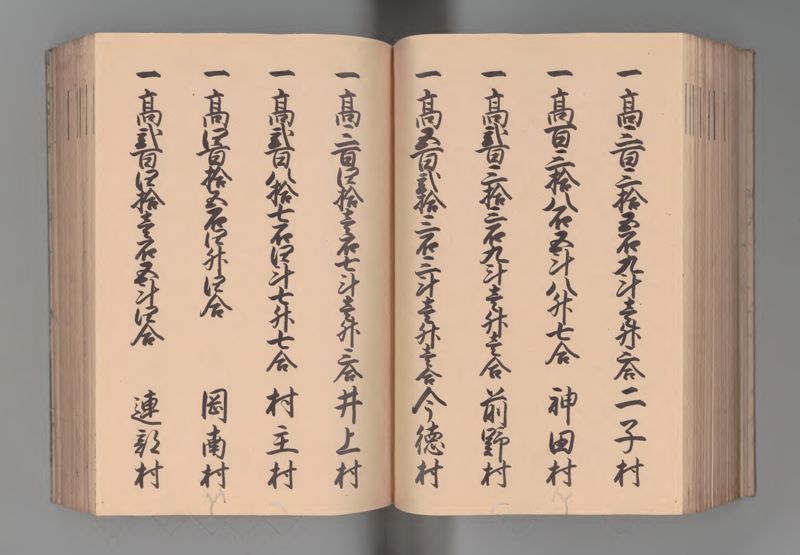 一高三百三拾五石九斗壱升三合 二子村
一高百三拾八石五斗八升七合 神田村
一高弐百三拾三石九斗壱升壱合 前野村
一高五百弐拾三石三斗壱升壱合 今徳村
一高三百四拾壱石七斗壱升三合 井上村
一高弐百八拾七石四斗七升七合 村主村
一高四百拾五石四升四合 岡南村
一高弐百四拾壱石五斗四合 連部村